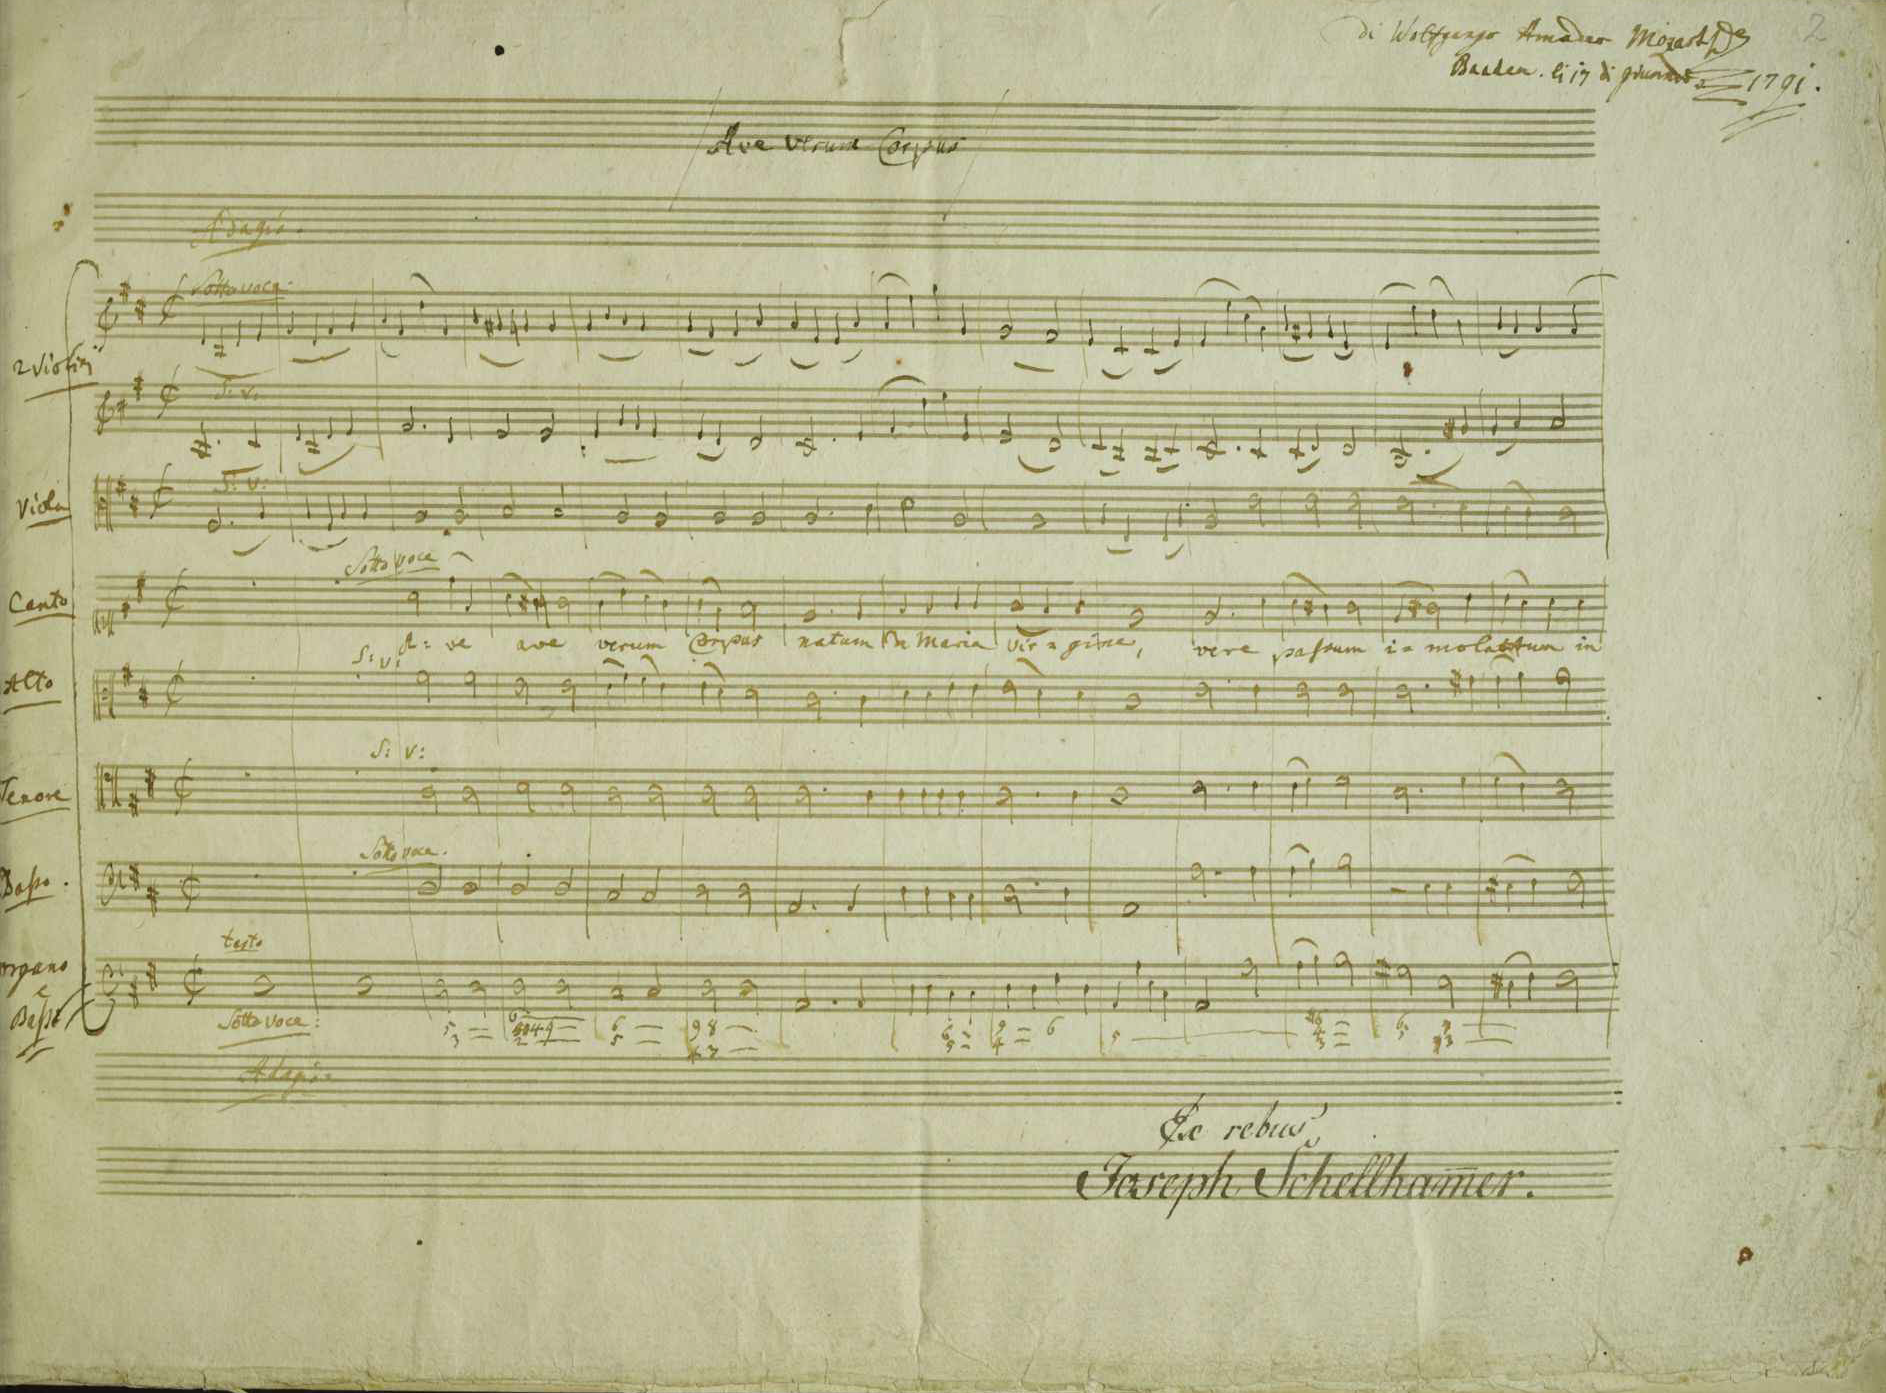 2
di Wolfgango Amadeo Mozart
Baaden. li 17 di giunnio 1791.
Ave verum Corpus
Adagio.
sotto voce.
2 Violini
S: v:
Viola
S: v:
Sotto voce
Canto
A = ve ave verum Corpus natum de Maria vir = gine, vere passum i = molatum in
S: v:
Alto
S: v:
Tenore
Sotto voce.
Basso.
tasto
organo
e
Basso
Sotto voce:
Adagio.
Ex rebus
Joseph Schellham̅er.